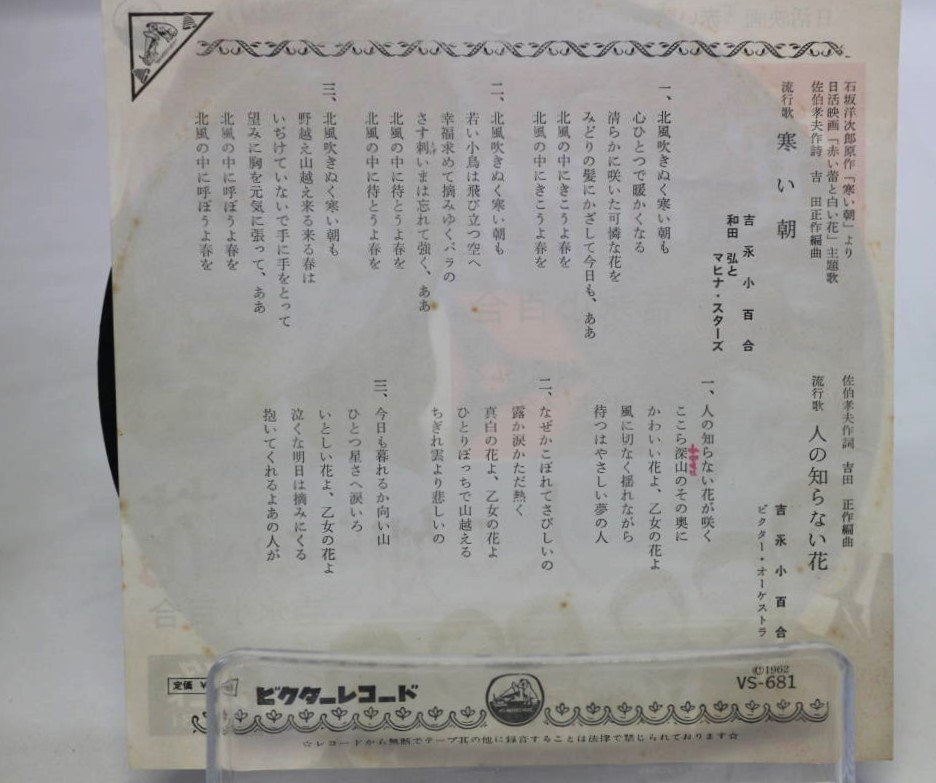 石坂洋次郎原作「寒い朝」より
日活映画「赤い蕾と白い花」主題歌
佐伯孝夫作詩 吉田正作編曲
流行歌 寒い朝
吉永小百合
和田弘と
マヒナ・スターズ
一、北風吹きぬく寒い朝も
心ひとつで暖かくなる
清らかに咲いた可憐な花を
みどりの髪にかざして今日も、ああ
北風の中にきこうよ春を
北風の中にきこうよ春を
二、北風吹きぬく寒い朝も
若い小鳥は飛び立つ空へ
幸福求めて摘みゆくバラの
さす刺いまは忘れて強く、ああ
北風の中に待とうよ春を
北風の中に待とうよ春を
三、北風吹きぬく寒い朝も
野越え山越え来る来る春は
いぢけていないで手に手をとって
望みに胸を元気に張って、ああ
北風の中に呼ぼうよ春を
北風の中に呼ぼうよ春を
佐伯孝夫作詞 吉田正作編曲
流行歌 人の知らない花
吉永小百合
ビクター・オーケストラ
一、人の知らない花が咲く
ここら深山のその奥に
かわいい花よ、乙女の花よ
風に切なく揺れながら
待つはやさしい夢の人
二、なぜかこぼれてさびしいの
露か涙かただ熱く
真白の花よ、乙女の花よ
ひとりぼっちで山越える
ちぎれ雲より悲しいの
三、今日も暮れるか向い山
ひとつ星さへ涙いろ
いとしい花よ、乙女の花よ
泣くな明日は摘みにくる
抱いてくれるよあの人が
定価 ¥
ビクターレコード
©1962
VS-681
☆レコードから無断でテープ其の他に録音することは法律で禁じられております☆